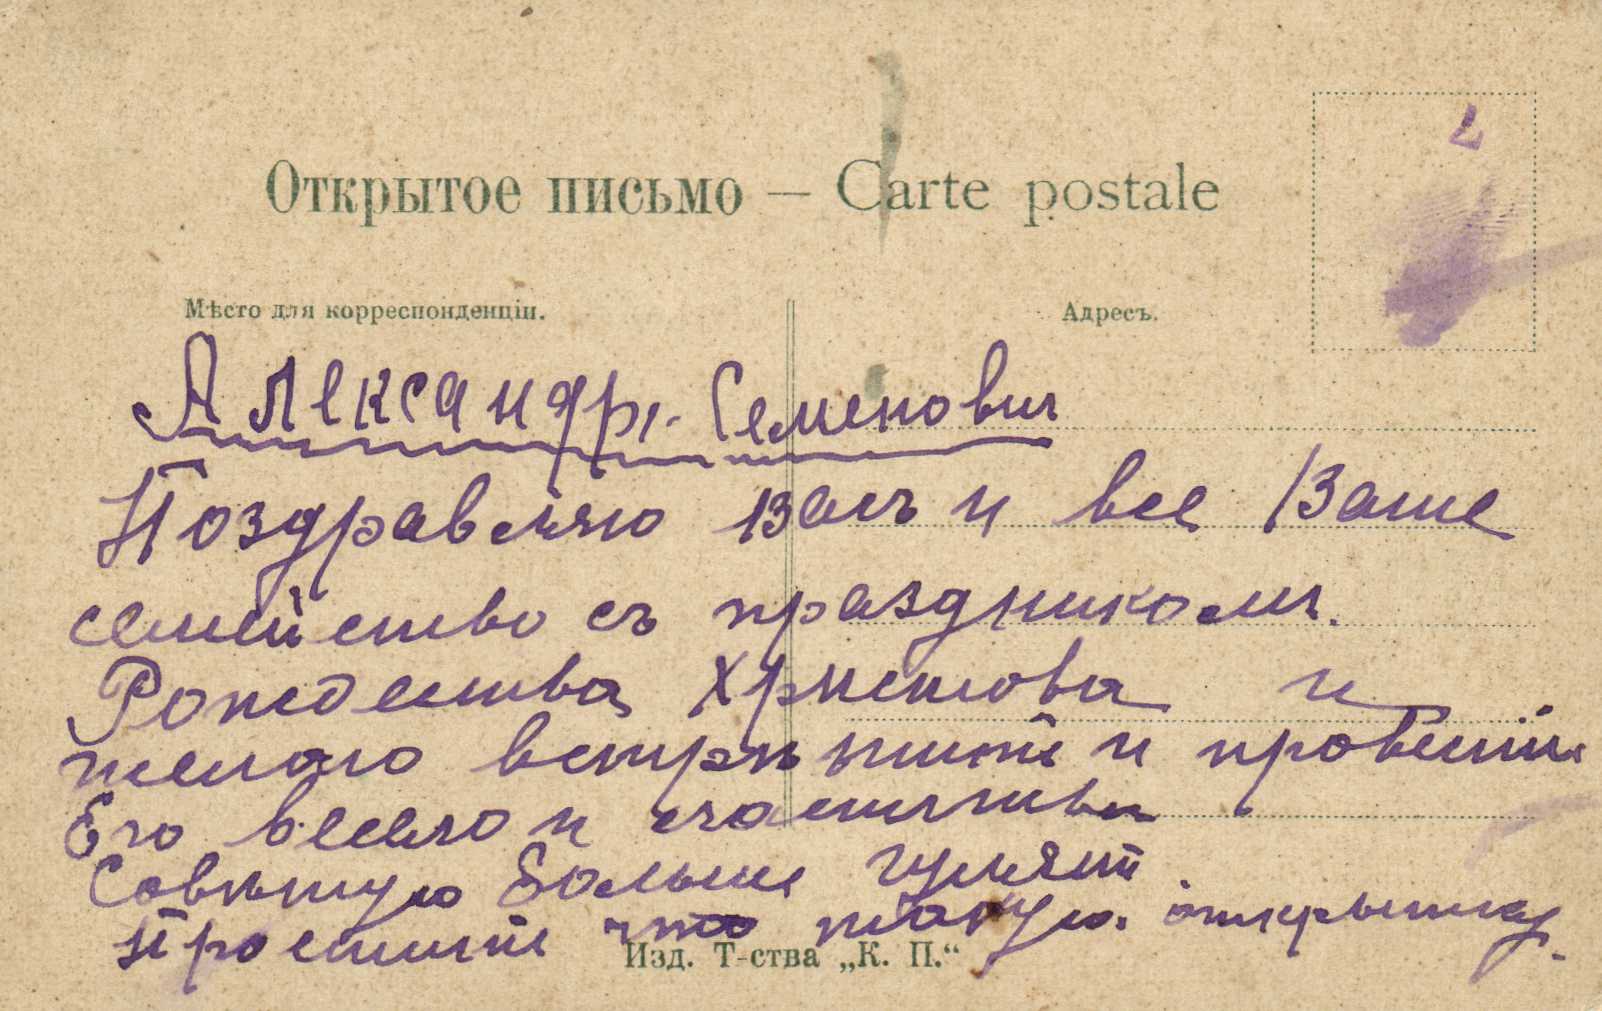 Открытое письмо — Carte postale
Мѣсто для корреспонденціи.
Адресъ.
Александръ Семенович
Поздравляю Васъ и все Ваше
семейство съ праздником.
Рождества Христова и
желаю встрѣтить и провести
Его весело и счастливо
Совѣтую больше гулять
Простите что такую открытку.
Изд. Т-ства „К. П.“